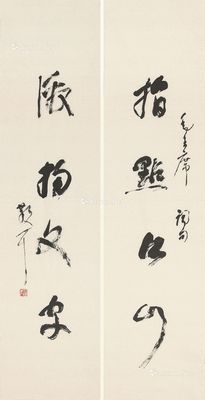 指點江山
毛主席詞句
激揚文字
啟功